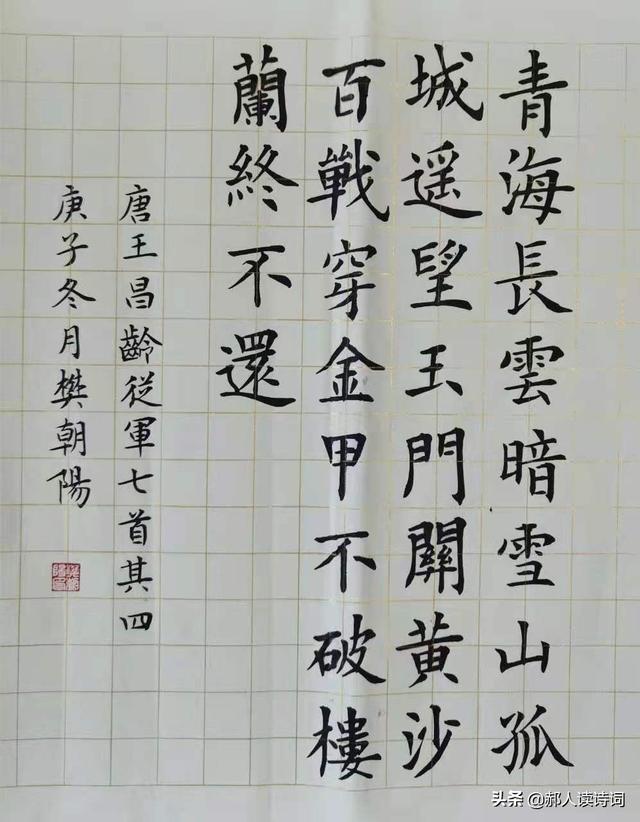 青海長雲暗雪山孤
城遥望玉門關黄沙
百戰穿金甲不破樓
蘭終不還
唐王昌齡從軍七首其四
庚子冬月樊朝陽
头条@郝人读诗词